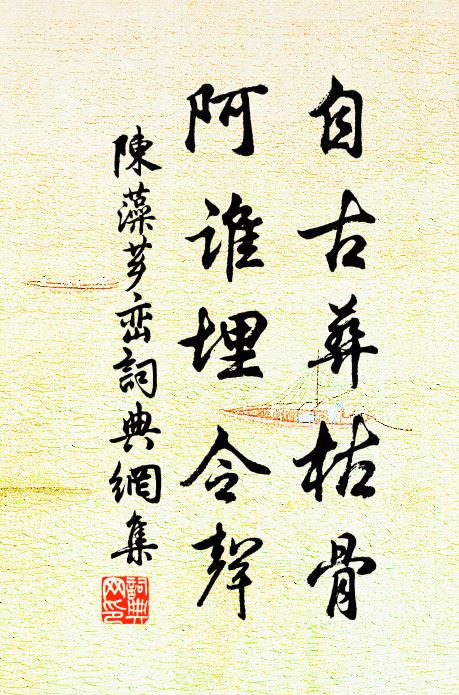 自古葬枯骨
阿誰埋令聲
陳藻詞典網集
詞典
网印